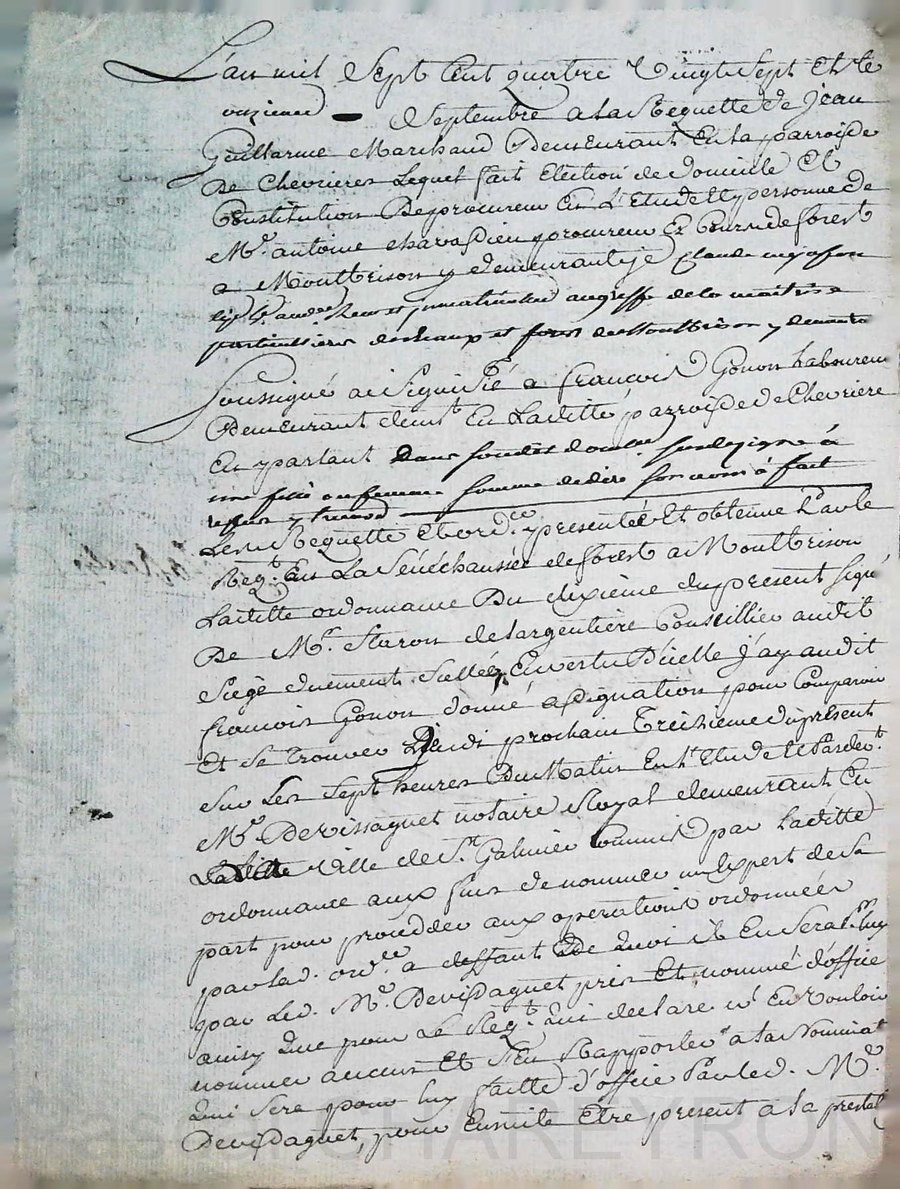 L'an mil Sept Cent quatre Vingt Sept Et le
onzieme Septembre a la Requette de Jean
Guillarme Marchand Demeurant En la parroisse
De Chevrieres Lequel fait Election de domicile Et
Constitution De procureur En L'Etude Et personne de
Mr. antoine chavassieu procureur Ez Cours de forest
a Montbrison y demeurant je Claude
au greffe de la maitrise
particuliere des Eaux et forets de Montbrison y demeurant
Soussigné ai Signifié a francois Gonon Laboureur
Demeurant En Ladite parroisse de Chevriere
En parlant Dans son domicile
une fille ou femme Somme de dire Son nom a fait
refus
Les Requette Et ordce. presentée Et obtenue Par le
Reqt. En La Sénéchaussée de forest a Montbrison
Laditte ordonnance Du dixieme du present Signé
De Mr. Staron de Largentiere Conseillier audit
Siege duement Sellée, En vertu D'icelle J'ay audit
francois Gonon donné assignation pour Comparoir
Et Se trouver Jeudi prochain Treizieme du present
Sur Les Sept heures Du Matin En L'Etude Et Pardevt.
Mr. Devissaguet notaire Royal demeurant En
Laditte Ville de St. Galmier Commis par Laditte
ordonnance aux fins de nommer un Expert de Sa
part pour proceder aux operations ordonnées
par Lad. ordce. a deffaut De quoi il En Sera
par Led. Mr. Devissaguet pris Et nommé d'office
ainsy que pour Le Reqt. qui declare n'En Vouloir
nommer aucun Et S'En Rapporter a la Nominat
qui Sera pour luy faitte d'office Par led. Mr.
Devissaguet, pour Ensuite Etre present a la prestat
CHAREYRON